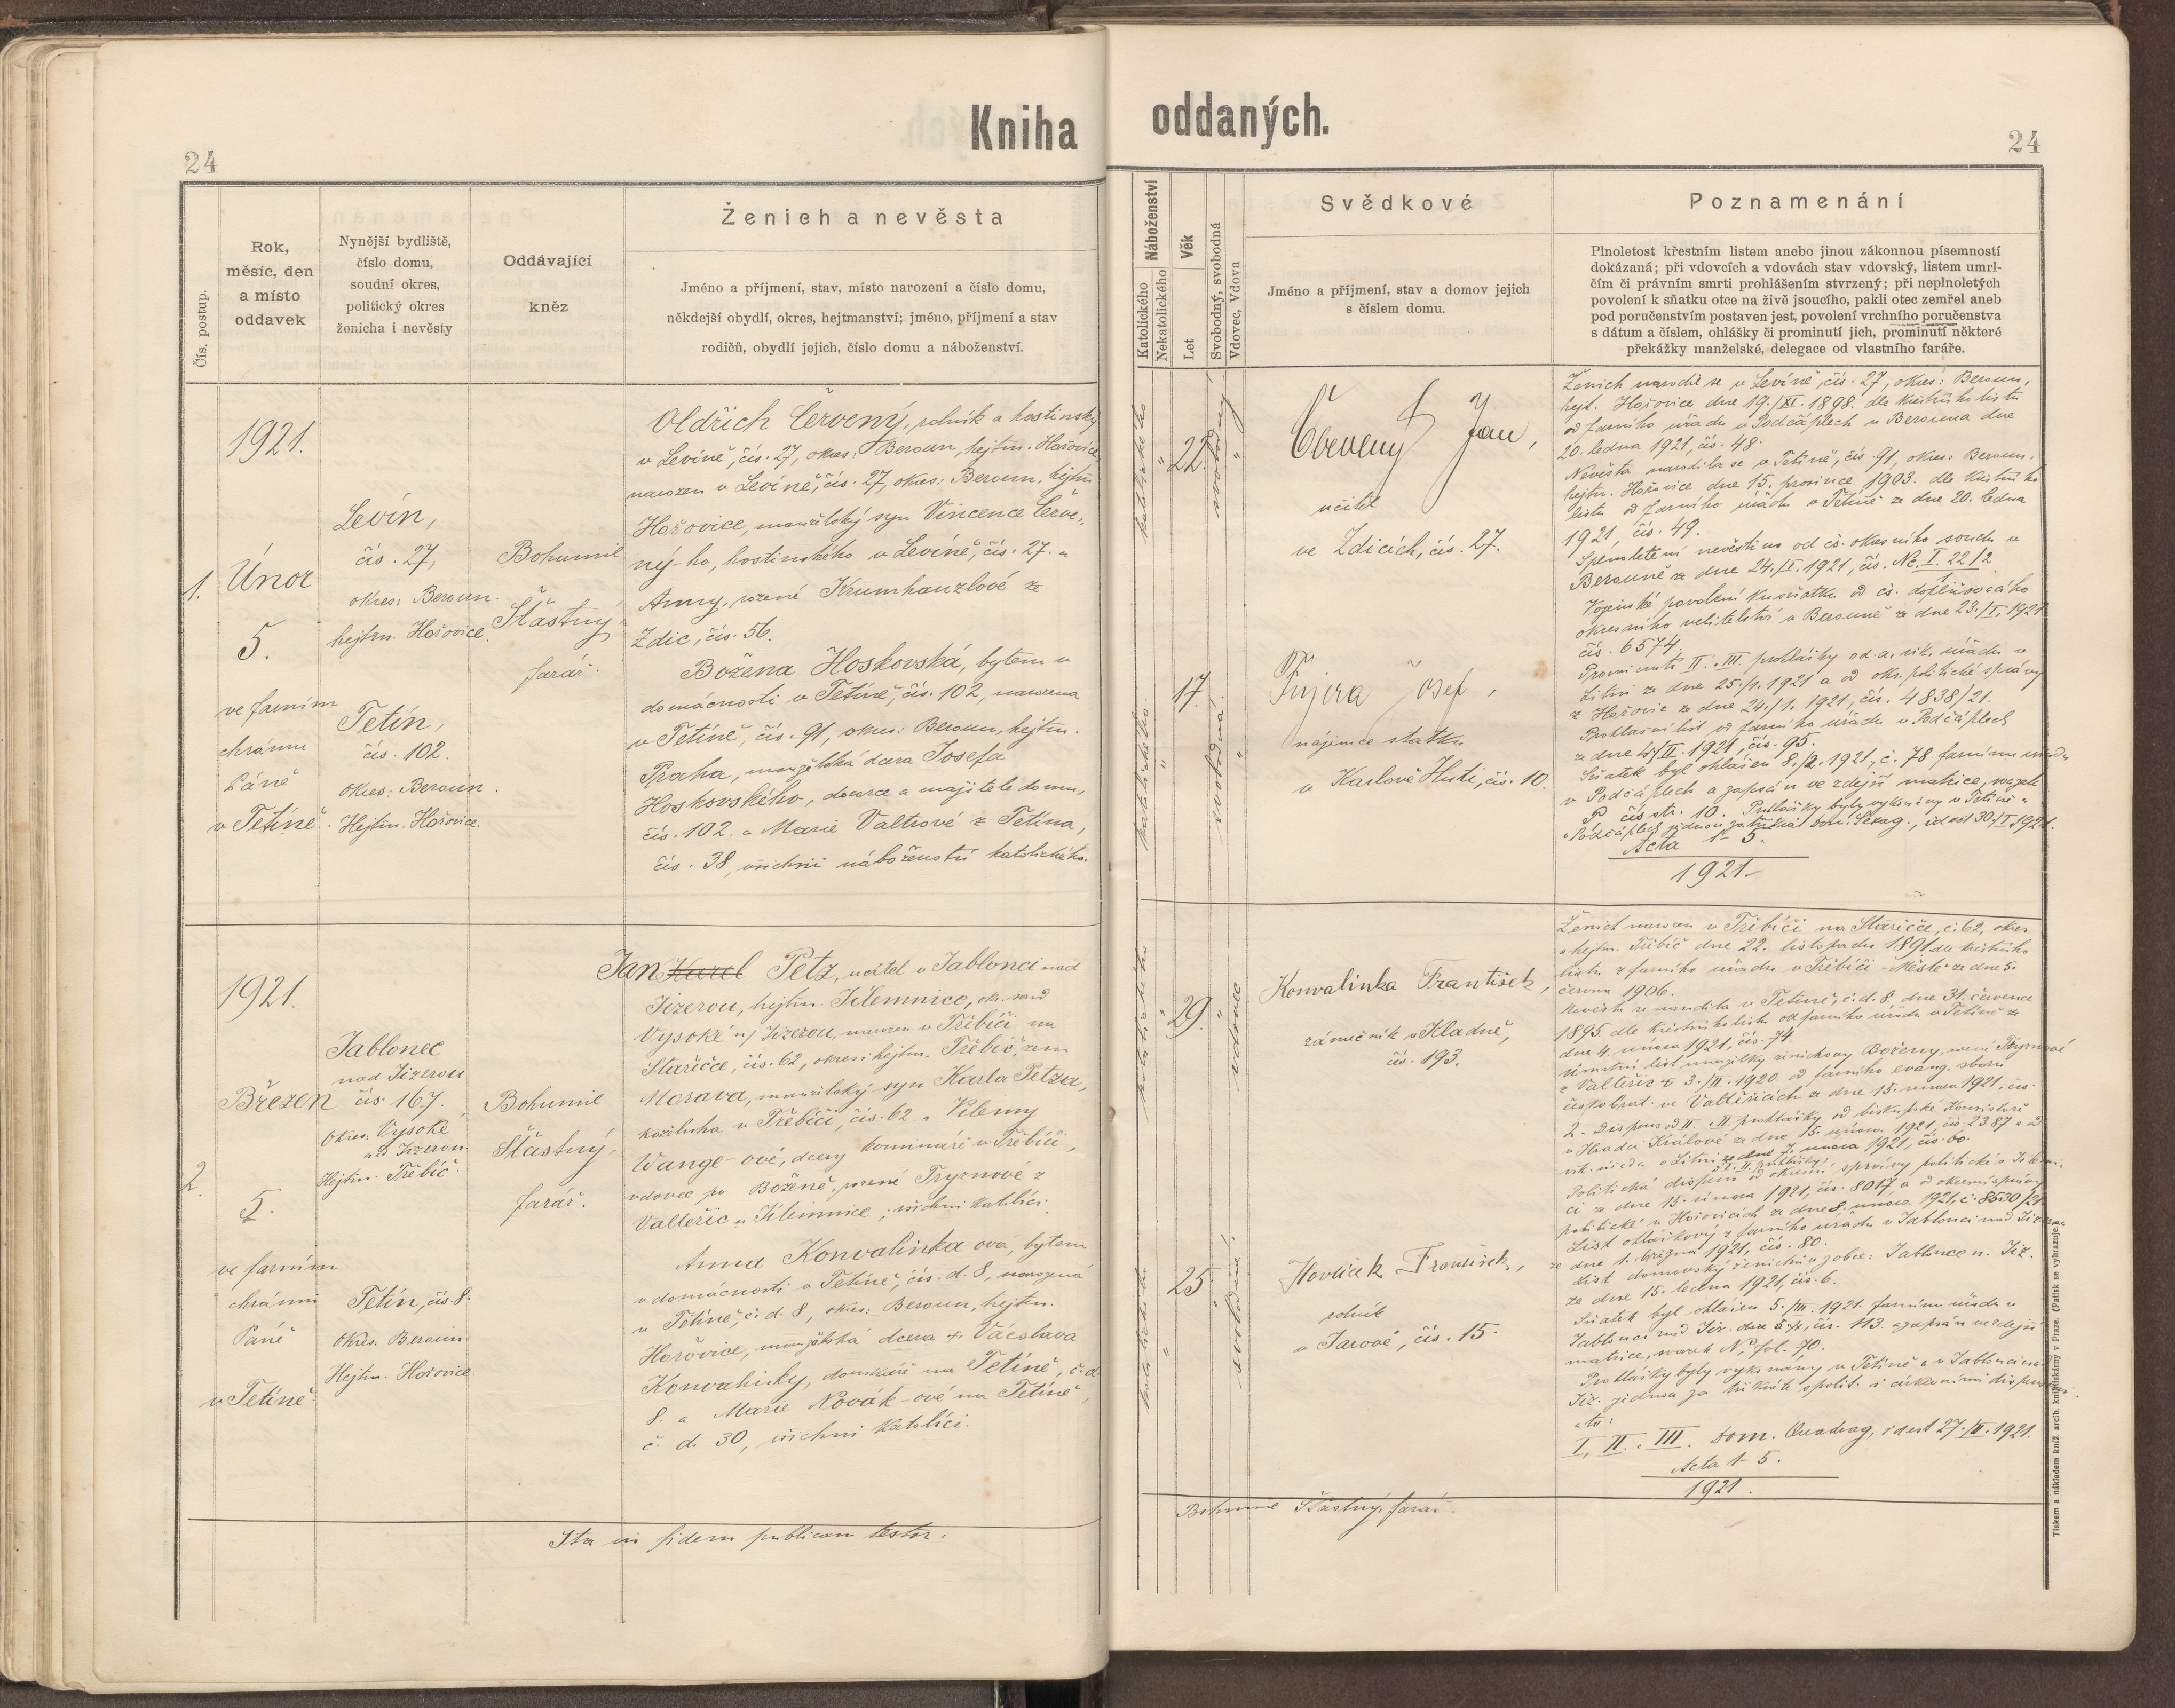 Kniha oddaných.
24
24
Čís. postup.
Rok,
měsíc, den
a místo
oddavek
Nynější bydliště,
číslo domu,
soudní okres,
politický okres
ženicha i nevěsty
Oddávající
kněz
Ženich a nevěsta
Jméno a příjmení, stav, místo narození a číslo domu,
někdejší obydlí, okres, hejtmanství; jméno, příjmení a stav
rodičů, obydlí jejich, číslo domu a náboženství.
Náboženství
Katolického
Nekatolického
Věk
Let
Svobodný, svobodná
Vdovec, Vdova
Svědkové
Jméno a příjmení, stav a domov jejich
s číslem domu.
Poznamenání
Plnoletost křestním listem anebo jinou zákonnou písemností
dokázaná; při vdovcích a vdovách stav vdovský, listem umrl-
čím či právním smrti prohlášením stvrzený; při neplnoletých
povolení k sňatku otce na živě jsoucího, pakli otec zemřel aneb
pod poručenstvím postaven jest, povolení vrchního poručenstva
s dátum a číslem, ohlášky či prominutí jich, prominutí některé
překážky manželské, delegace od vlastního faráře.
1.
1921.
Únor
5.
ve farním
chrámu
Páně
v Tetíně.
Levín,
čís. 27,
okres: Beroun.
hejtm. Hořovice.
Tetín,
čís. 102.
okres: Beroun.
Hejtm. Hořovice.
Bohumil
Šťastný,
farář.
Oldřich Červený, rolník a hostinský
v Levíně, čís. 27, okres: Beroun, hejtm. Hořovice,
narozen v Levíně, čís. 27, okres: Beroun, hejtm.
Hořovice, manželský syn Vincence Červe-
ný-ho, hostinského v Levíně, čís. 27. a
Anny, rozené Krumhanzlové ze
Zdic, čís. 56.
Božena Hoskovská, bytem v
domácnosti v Tetíně, čís. 102, narozena
v Tetíně, čís. 91, okres: Beroun, hejtm.
Praha, manželská dcera Josefa
Hoskovského, dozorce a majitele domu,
čís. 102. a Marie Valtrové z Tetína,
čís. 38, všichni náboženství katolického.
katolického
" 22.
svobodný
"
katolického.
" 17.
svobodná.
"
Červený Jan,
učitel
ve Zdicích, čís. 27.
Fujera Josef,
nájemce statku
v Karlově Huti, čís. 10.
Ženich narodil se v Levíně, čís. 27, okres: Beroun,
hejt. Hořovice dne 19./XI. 1898. dle křestního listu
od farního úřadu v Počáplech u Berouna dne
20. ledna 1921, čís. 48.
Nevěsta narodila se v Tetíně, čís. 91, okres: Beroun,
hejtm. Hořovice dne 15. prosince 1903. dle křestního
listu od farního úřadu v Tetíně ze dne 20. ledna
1921, čís. 49.
nevěstino od čs. okresního soudu v
Berouně ze dne 24./I. 1921, čís. Nc. I. 22/2
Vojenské povolení ku sňatku od čs. doplňovacího
okresního velitelství v Berouně ze dne 23./I. 1921
čís. 6574.
Prominutí II. a III. prohlášky od a. vik. úřadu v
Litni ze dne 25./1. 1921 a od okr. politické správy
z Hořovic ze dne 24./1. 1921, čís. 4838/21.
Prohlašní list od farního úřadu v Počáplech
ze dne 4./II. 1921, čís. 95.
Sňatek byl ohlášen 8./2. 1921, č. 78 farnímu úřadu
v Počáplech a zapsán ve zdejší matrice,
čís. str. 10. Prohlášky byly vykonány v Tetíně a
Počáplech jednou za třikrát Dom. Sexag., id est 30./I. 1921.
Acta 1-5.
1921.
2.
1921.
Březen
5.
ve farním
chrámu
Páně
v Tetíně.
Jablonec
nad Jizerou
čís 167.
Okres: Vysoké
n/ Jizerou.
Hejtm. Třebíč.
Tetín, čís. 8.
okres. Beroun
Hejtm. Hořovice.
Bohumil
Šťastný,
farář.
Jan Karel Petz, učitel v Jablonci nad
Jizerou, hejtm. Jilemnice, okr. soud
Vysoké n/ Jizerou, narozen v Třebíči na
Stařečce, čís. 62, okres i hejtm. Třebíč, zem
Morava, manželský syn Karla Petza,
koželuha v Třebíči, čís. 62 a Vilemy
Wange-ové, dcery kominíře v Třebíči,
vdovec po Boženě, rozené Tryznové z
Valteřic u Jilemnice; všichni katolíci.
Anna Konvalinka-ová, bytem
v domácnosti v Tetíně, čís. d. 8, narozená
v Tetíně, č. d. 8, okres: Beroun, hejtm.
Hořovice, manželská dcera + Václava
Konvalinky, domkáře na Tetíně, č. d.
8. a Marie Novák-ové na Tetíně,
č. d. 30, všichni katolíci.
katolického
" 29.
"
vdovec
katolického
" 25.
svobodná.
Konvalinka František,
zámečník v Kladně,
čís. 193.
Havlíček František,
rolník
v Jarově, čís. 15.
Ženich narozen v Třebíči na Stařečce, č. 62, okres
a hejtm. Třebíč dne 22. listopadu 1891 dle křestního
listu z farního úřadu v Třebíči-Městě ze dne 5.
června 1906.
Nevěsta se narodila v Tetíně, č. d. 8. dne 31. července
1895 dle křestního listu od farního úřadu v Tetíně ze
dne 4. února 1921, čís. 74.
Úmrtní list manželky ženichovy Boženy, rozené Tryznové
z Valteřic + 3./III. 1920. od farního evang. sboru
českobrat. ve Valteřicích ze dne 15. února 1921, čís.
2. Dispens od II. a III. prohlášky od biskupské Konsistoře
v Hradci Králové ze dne 15. února 1921, čís. 2387 a od
vik. úřadu v Litni ze dne 7. února 1921, čís. 60.
Politická dispens od okresní správy politické v Jilemni-
ci ze dne 15. února 1921, čís. 8017 a od okresní správy
politické v Hořovicích ze dne 8. února 1921, č. 8530/21.
List ohláškový z farního úřadu v Jablonci nad Jizerou
ze dne 1. března 1921, čís. 80.
List domovský ženichův z obce: Jablonec n. Jiz.
ze dne 15. ledna 1921, čís. 6.
Sňatek byl ohlášen 5./III. 1921. farnímu úřadu v
Jablonci nad Jiz. čís. 113. a zapsán ve zdejší
matrice, fol. 70.
Prohlášky byly vykonány v Tetíně a v Jablonci nad
Jiz. jednou za třikrát s polit. i církevními dispensemi
a to:
I., II. a III. Dom. Quadrag, id est 27./II. 1921.
Acta 1-5.
1921.
Ita in fidem publicam testor: Bohumil Šťastný, farář.
Tiskem a nákladem kníž. arcib. knihtiskárny v Praze. (Patisk se vyhrazuje.)